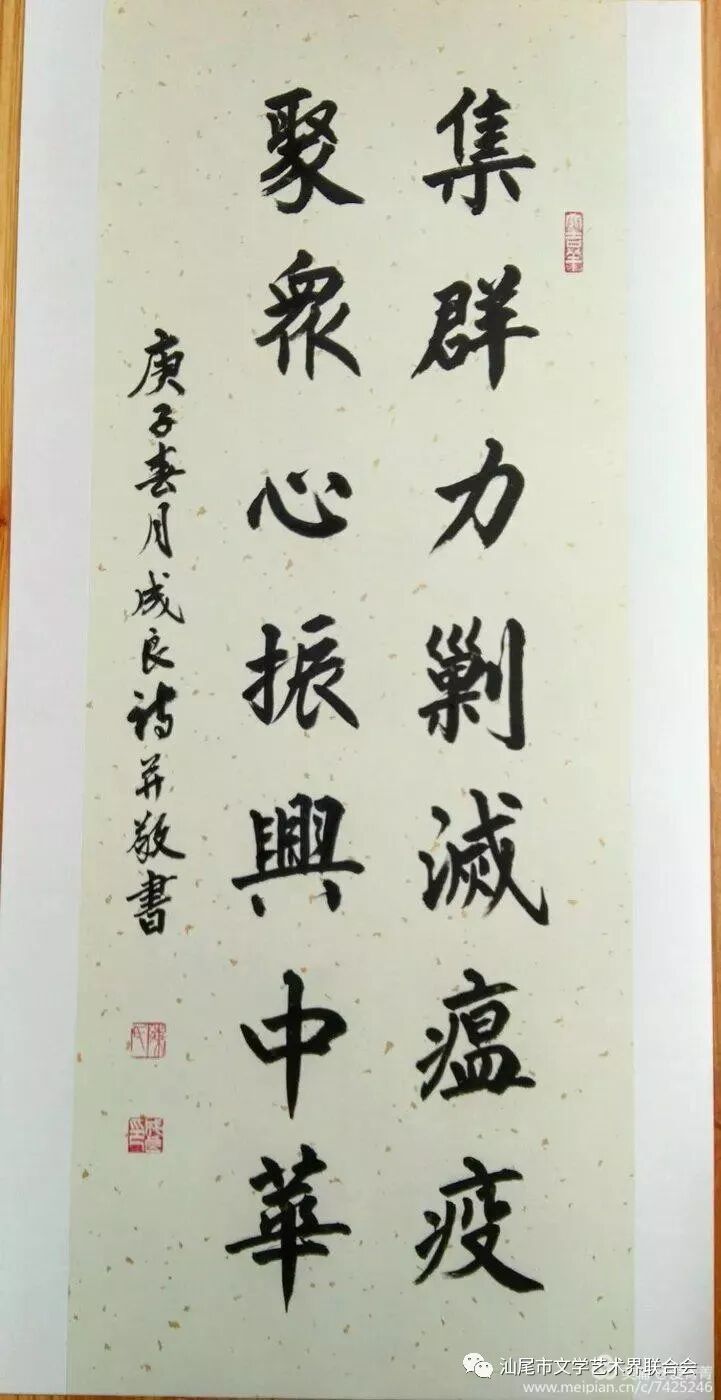 集群力剿滅瘟疫
聚眾心振興中華
庚子春月成良诗并敬書
汕尾市文学艺术界联合会
www.meipian.cn/c/7425246